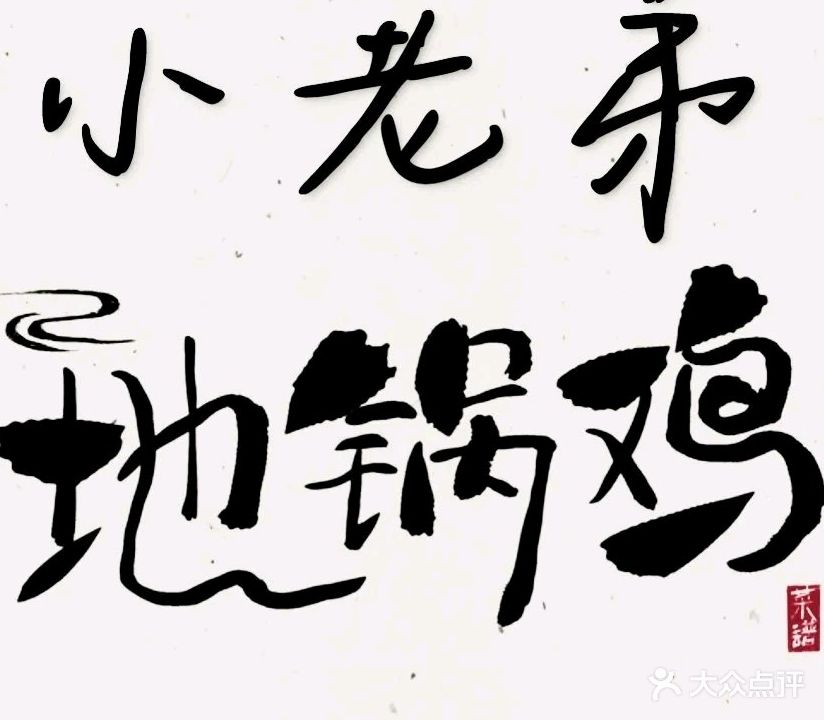 小老弟
地锅鸡
菜谱
大众点评